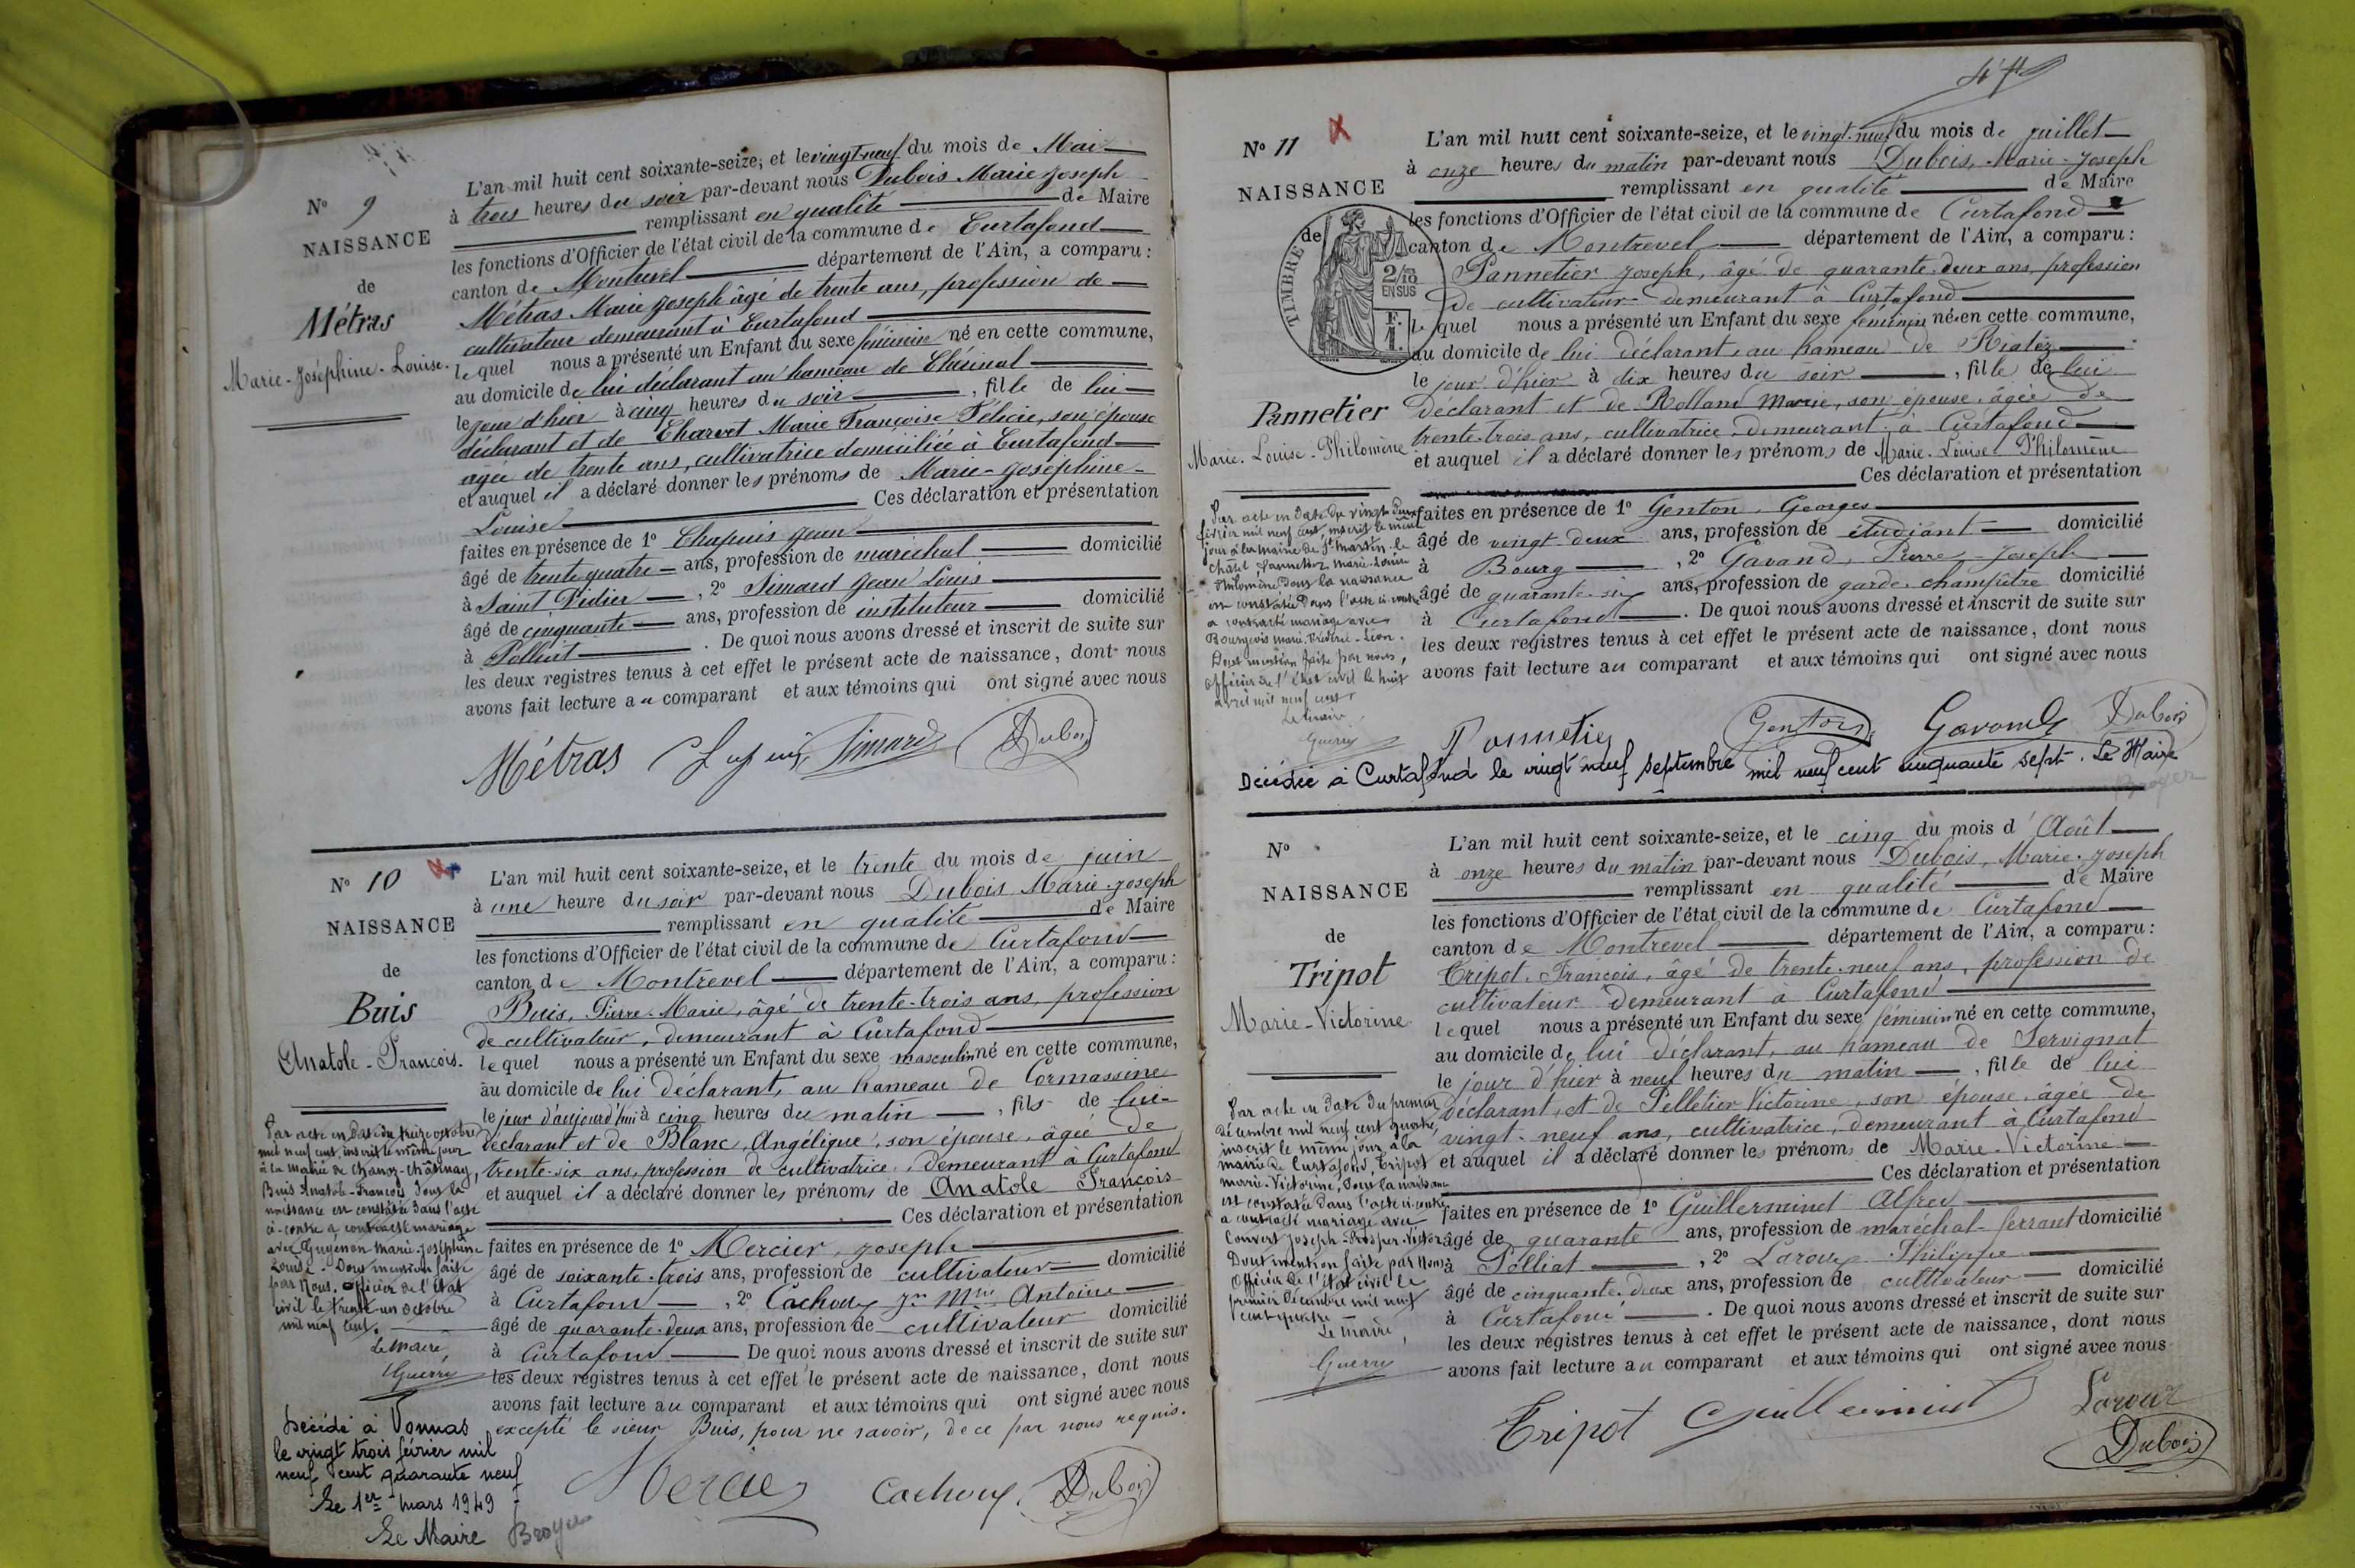 N° 9
NAISSANCE
de
Métras
Marie-Joséphine-Louise.
L'an mil huit cent soixante-seize, et le vingt-neuf du mois de Mai
à trois heures du soir par-devant nous Dubois Marie Joseph
remplissant en qualité de Maire
les fonctions d'Officier de l'état civil de la commune de Curtafond
canton de Montrevel département de l'Ain, a comparu :
Métras Marie Joseph âgé de trente ans, profession de
cultivateur demeurant à Curtafond
lequel nous a présenté un Enfant du sexe féminin né en cette commune,
au domicile de lui déclarant au hameau de
le jour d'hier à cinq heures du soir , fille de lui
déclarant et de Charvet Marie Françoise Félicie, son épouse
agée de trente ans, cultivatrice domiciliée à Curtafond
et auquel il a déclaré donner les prénoms de Marie-Joséphine-
Louise Ces déclaration et présentation
faites en présence de 1° Chapuis Jean
âgé de trente quatre ans, profession de maréchal domicilié
à Saint Didier , 2° Simard Jean Louis
âgé de cinquante ans, profession de instituteur domicilié
à Polliat . De quoi nous avons dressé et inscrit de suite sur
les deux registres tenus à cet effet le présent acte de naissance, dont nous
avons fait lecture au comparant et aux témoins qui ont signé avec nous
Métras Simard Dubois
N° 10
NAISSANCE
de
Buis
Anatole-François.
Par acte en date du treize octobre
mil neuf cent, inscrit le même jour
à la Mairie de Chanoz-Châtenay,
Buis Anatole-François dont la
naissance est constatée dans l'acte
ci-contre a contracté mariage
avec Guyénon Marie-Joséphine
Louise. Dont mention faite
par Nous, Officier de l'état
civil le trente-un octobre
mil neuf cent.
Le Maire,
Guerry
Décédé à Vonnas
le vingt trois février mil
neuf cent quarante neuf
Le 1er mars 1949
Le Maire Broyer
L'an mil huit cent soixante-seize, et le trente du mois de juin
à une heure du soir par-devant nous Dubois Marie-Joseph
remplissant en qualité de Maire
les fonctions d'Officier de l'état civil de la commune de Curtafond
canton de Montrevel département de l'Ain, a comparu :
Buis, Pierre-Marie, âgé de trente-trois ans, profession
de cultivateur, demeurant à Curtafond
lequel nous a présenté un Enfant du sexe masculin né en cette commune,
au domicile de lui déclarant, au hameau de Cormassine
le jour d'aujourd'hui à cinq heures du matin , fils de lui
déclarant et de Blanc, Angélique, son épouse, âgée de
trente-six ans, profession de cultivatrice, demeurant à Curtafond
et auquel il a déclaré donner les prénoms de Anatole François
Ces déclaration et présentation
faites en présence de 1° Mercier, Joseph
âgé de soixante-trois ans, profession de cultivateur domicilié
à Curtafond , 2° Cachoux Antoine
âgé de quarante-deux ans, profession de cultivateur domicilié
à Curtafond De quoi nous avons dressé et inscrit de suite sur
les deux registres tenus à cet effet le présent acte de naissance, dont nous
avons fait lecture au comparant et aux témoins qui ont signé avec nous
excepté le sieur Buis, pour ne savoir, de ce par nous requis.
Mercier Cachoux Dubois
N° 11
NAISSANCE
de
TIMBRE
2/10
EN SUS
F.
1.
Pannetier
Marie-Louise-Philomène
Par acte en date du vingt-deux
février mil neuf cent, inscrit le même
jour à la mairie de St Martin-le
Châtel Pannetier Marie-Louise
Philomène dont la naissance
est constatée dans l'acte ci-contre
a contracté mariage avec
Bourgeois Marie-Frédéric-Léon.
Dont mention faite par nous,
Officier de l'état civil le huit
avril mil neuf cent
Le maire
Guerry
L'an mil huit cent soixante-seize, et le vingt-neuf du mois de juillet
à onze heures du matin par-devant nous Dubois, Marie-Joseph
remplissant en qualité de Maire
les fonctions d'Officier de l'état civil de la commune de Curtafond
canton de Montrevel département de l'Ain, a comparu :
Pannetier Joseph, âgé de quarante-deux ans, profession
de cultivateur demeurant à Curtafond
lequel nous a présenté un Enfant du sexe féminin né en cette commune,
au domicile de lui déclarant, au hameau de
le jour d'hier à dix heures du soir , fille de lui
déclarant et de Rolland Marie, son épouse, âgée de
trente-trois ans, cultivatrice, demeurant à Curtafond
et auquel il a déclaré donner les prénoms de Marie-Louise Philomène
Ces déclaration et présentation
faites en présence de 1° Genton, Georges
âgé de vingt-deux ans, profession de étudiant domicilié
à Bourg , 2° Gavand, Pierre-Joseph
âgé de quarante-six ans, profession de garde-champêtre domicilié
à Curtafond . De quoi nous avons dressé et inscrit de suite sur
les deux registres tenus à cet effet le présent acte de naissance, dont nous
avons fait lecture au comparant et aux témoins qui ont signé avec nous
Pannetier Genton Gavand Dubois
Décédée à Curtafond le vingt neuf septembre mil neuf cent cinquante sept. Le Maire
Broyer
N°
NAISSANCE
de
Tripot
Marie-Victorine
Par acte en date du premier
décembre mil neuf cent quatre,
inscrit le même jour à la
mairie de Curtafond, Tripot
Marie-Victorine, dont la naissance
est constatée dans l'acte ci-contre
a contracté mariage avec
Convert Joseph-Prosper-Victor
Dont mention faite par Nous
Officier de l'état civil le
premier décembre mil neuf
cent quatre
Le maire,
Guerry
L'an mil huit cent soixante-seize, et le cinq du mois d'Août
à onze heures du matin par-devant nous Dubois, Marie-Joseph
remplissant en qualité de Maire
les fonctions d'Officier de l'état civil de la commune de Curtafond
canton de Montrevel département de l'Ain, a comparu :
Tripot, François, âgé de trente-neuf ans, profession de
cultivateur demeurant à Curtafond
lequel nous a présenté un Enfant du sexe féminin né en cette commune,
au domicile de lui déclarant, au hameau de Servignat
le jour d'hier à neuf heures du matin , fille de lui
déclarant, et de Pelletier Victorine, son épouse, âgée de
vingt-neuf ans, cultivatrice, demeurant à Curtafond
et auquel il a déclaré donner les prénoms de Marie-Victorine
Ces déclaration et présentation
faites en présence de 1° Guillerminet Alfred
âgé de quarante ans, profession de maréchal-ferrant domicilié
à Polliat , 2° Laroux Philippe
âgé de cinquante-deux ans, profession de cultivateur domicilié
à Curtafond . De quoi nous avons dressé et inscrit de suite sur
les deux registres tenus à cet effet le présent acte de naissance, dont nous
avons fait lecture au comparant et aux témoins qui ont signé avec nous
Tripot Guillerminet Laroux
Dubois